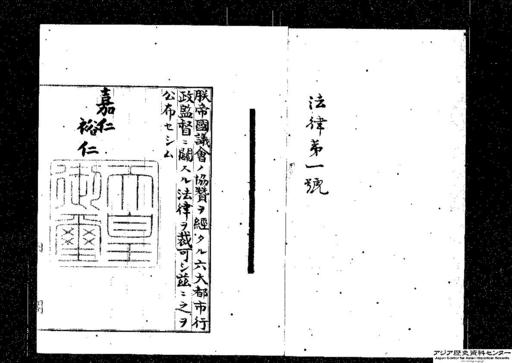 法律第一號
朕帝國議會ノ協贊ヲ經タル六大都市行
政監督ニ關スル法律ヲ裁可シ茲ニ之ヲ
公布セシム
嘉仁
裕仁
天皇
御璽
アジア歴史資料センター
Japan Center for Asian Historical Records